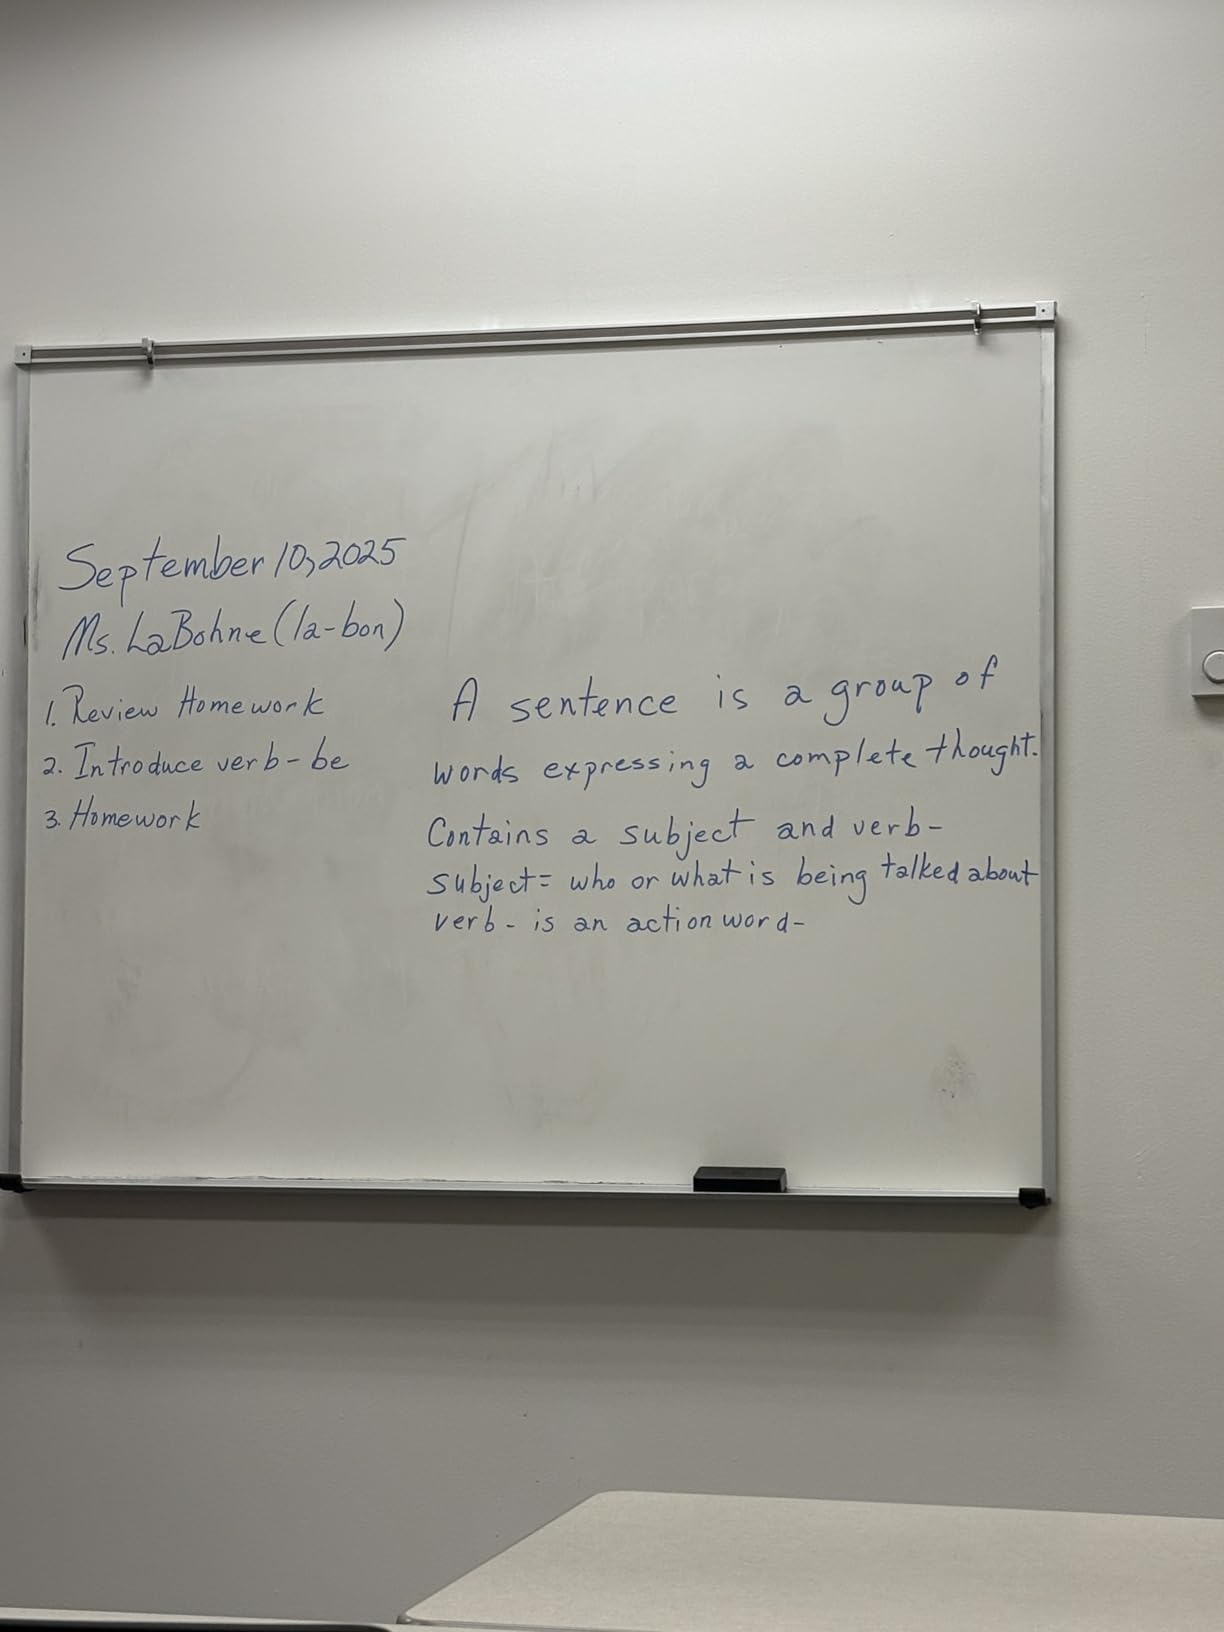 September 10, 2025
Ms. LaBohne (la-bon)
1. Review Homework
2. Introduce verb - be
3. Homework
A sentence is a group of
words expressing a complete thought.
Contains a subject and verb -
subject = who or what is being talked about
verb - is an action word -